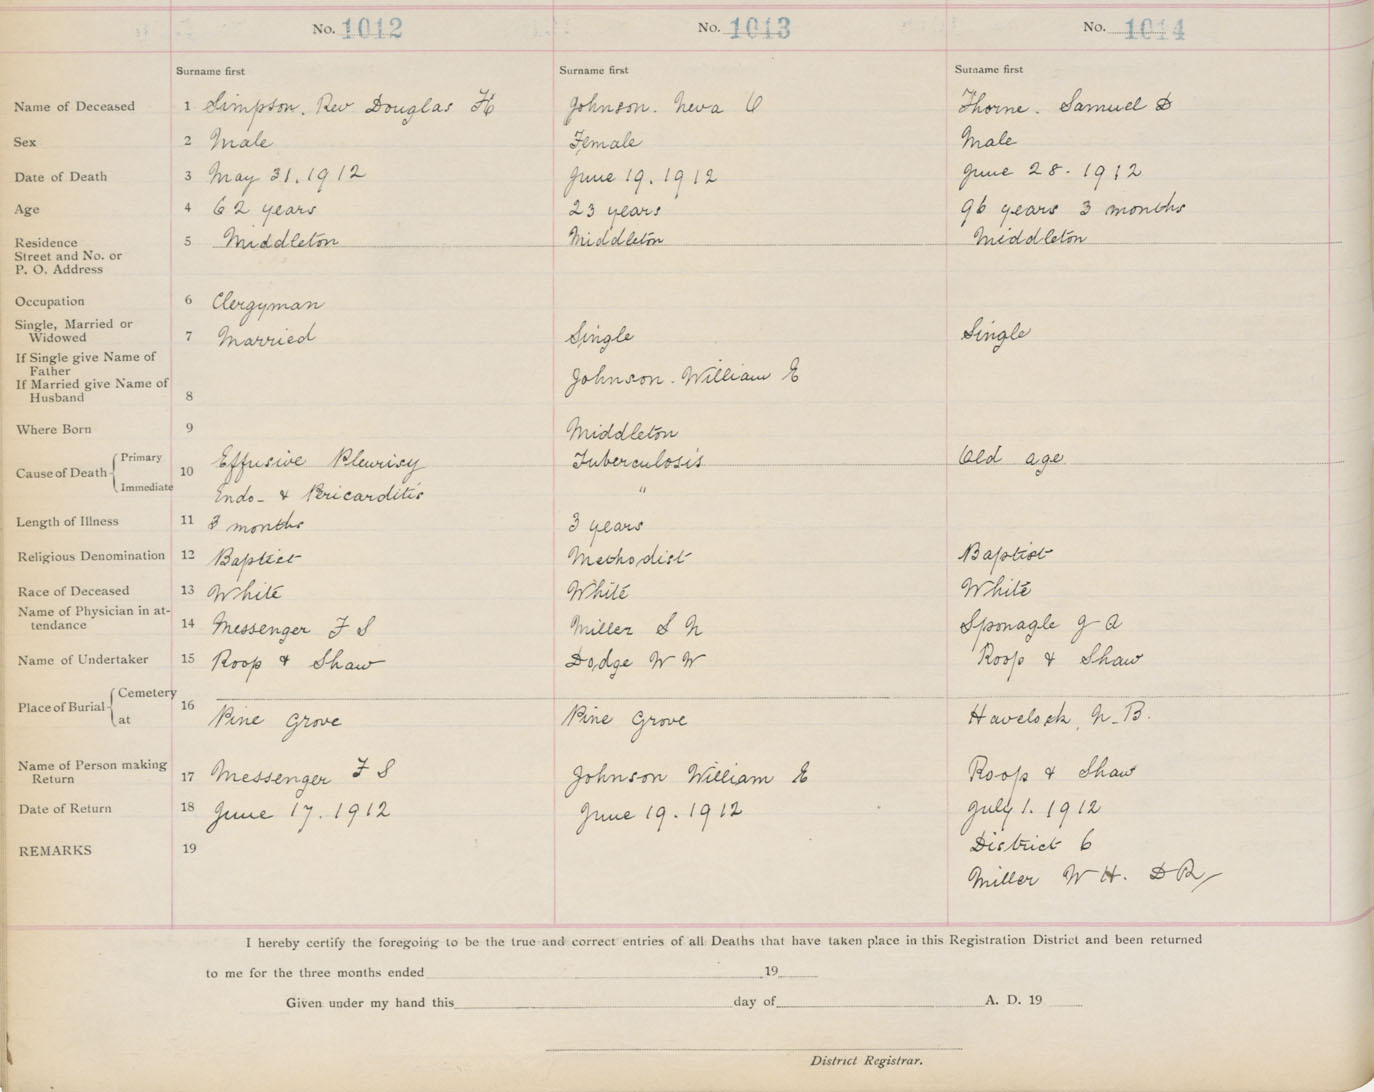 No. 1012 No. 1013 No. 1014
Surname first Surname first Surname first
Name of Deceased 1 Simpson. Rev Douglas H Johnson. Neva O Thorne. Samuel D
Sex 2 Male Female Male
Date of Death 3 May 31. 1912 June 19. 1912 June 28. 1912
Age 4 62 years 23 years 96 years 3 months
Residence 5 Middleton Middleton Middleton
Street and No. or
P. O. Address
Occupation 6 Clergyman
Single, Married or
Widowed 7 Married Single Single
If Single give Name of
Father
Johnson. William E
If Married give Name of
Husband 8
Where Born 9 Middleton
Cause of Death Primary 10 Effusive Pleurisy Tuberculosis Old age
Immediate Endo- & Pericarditis "
Length of Illness 11 3 months 3 years
Religious Denomination 12 Baptist Methodist Baptist
Race of Deceased 13 White White White
Name of Physician in at-
tendance 14 Messenger F S Miller S N Sponagle J A
Name of Undertaker 15 Roop & Shaw Dodge W W Roop & Shaw
Place of Burial Cemetery 16
at Pine Grove Pine Grove Havelock, N. B.
Name of Person making
Return 17 Messenger F S Johnson William E Roop & Shaw
Date of Return 18 June 17. 1912 June 19. 1912 July 1. 1912
REMARKS 19 District 6
Miller W H. D R
I hereby certify the foregoing to be the true and correct entries of all Deaths that have taken place in this Registration District and been returned
to me for the three months ended 19
Given under my hand this day of A. D. 19
District Registrar.